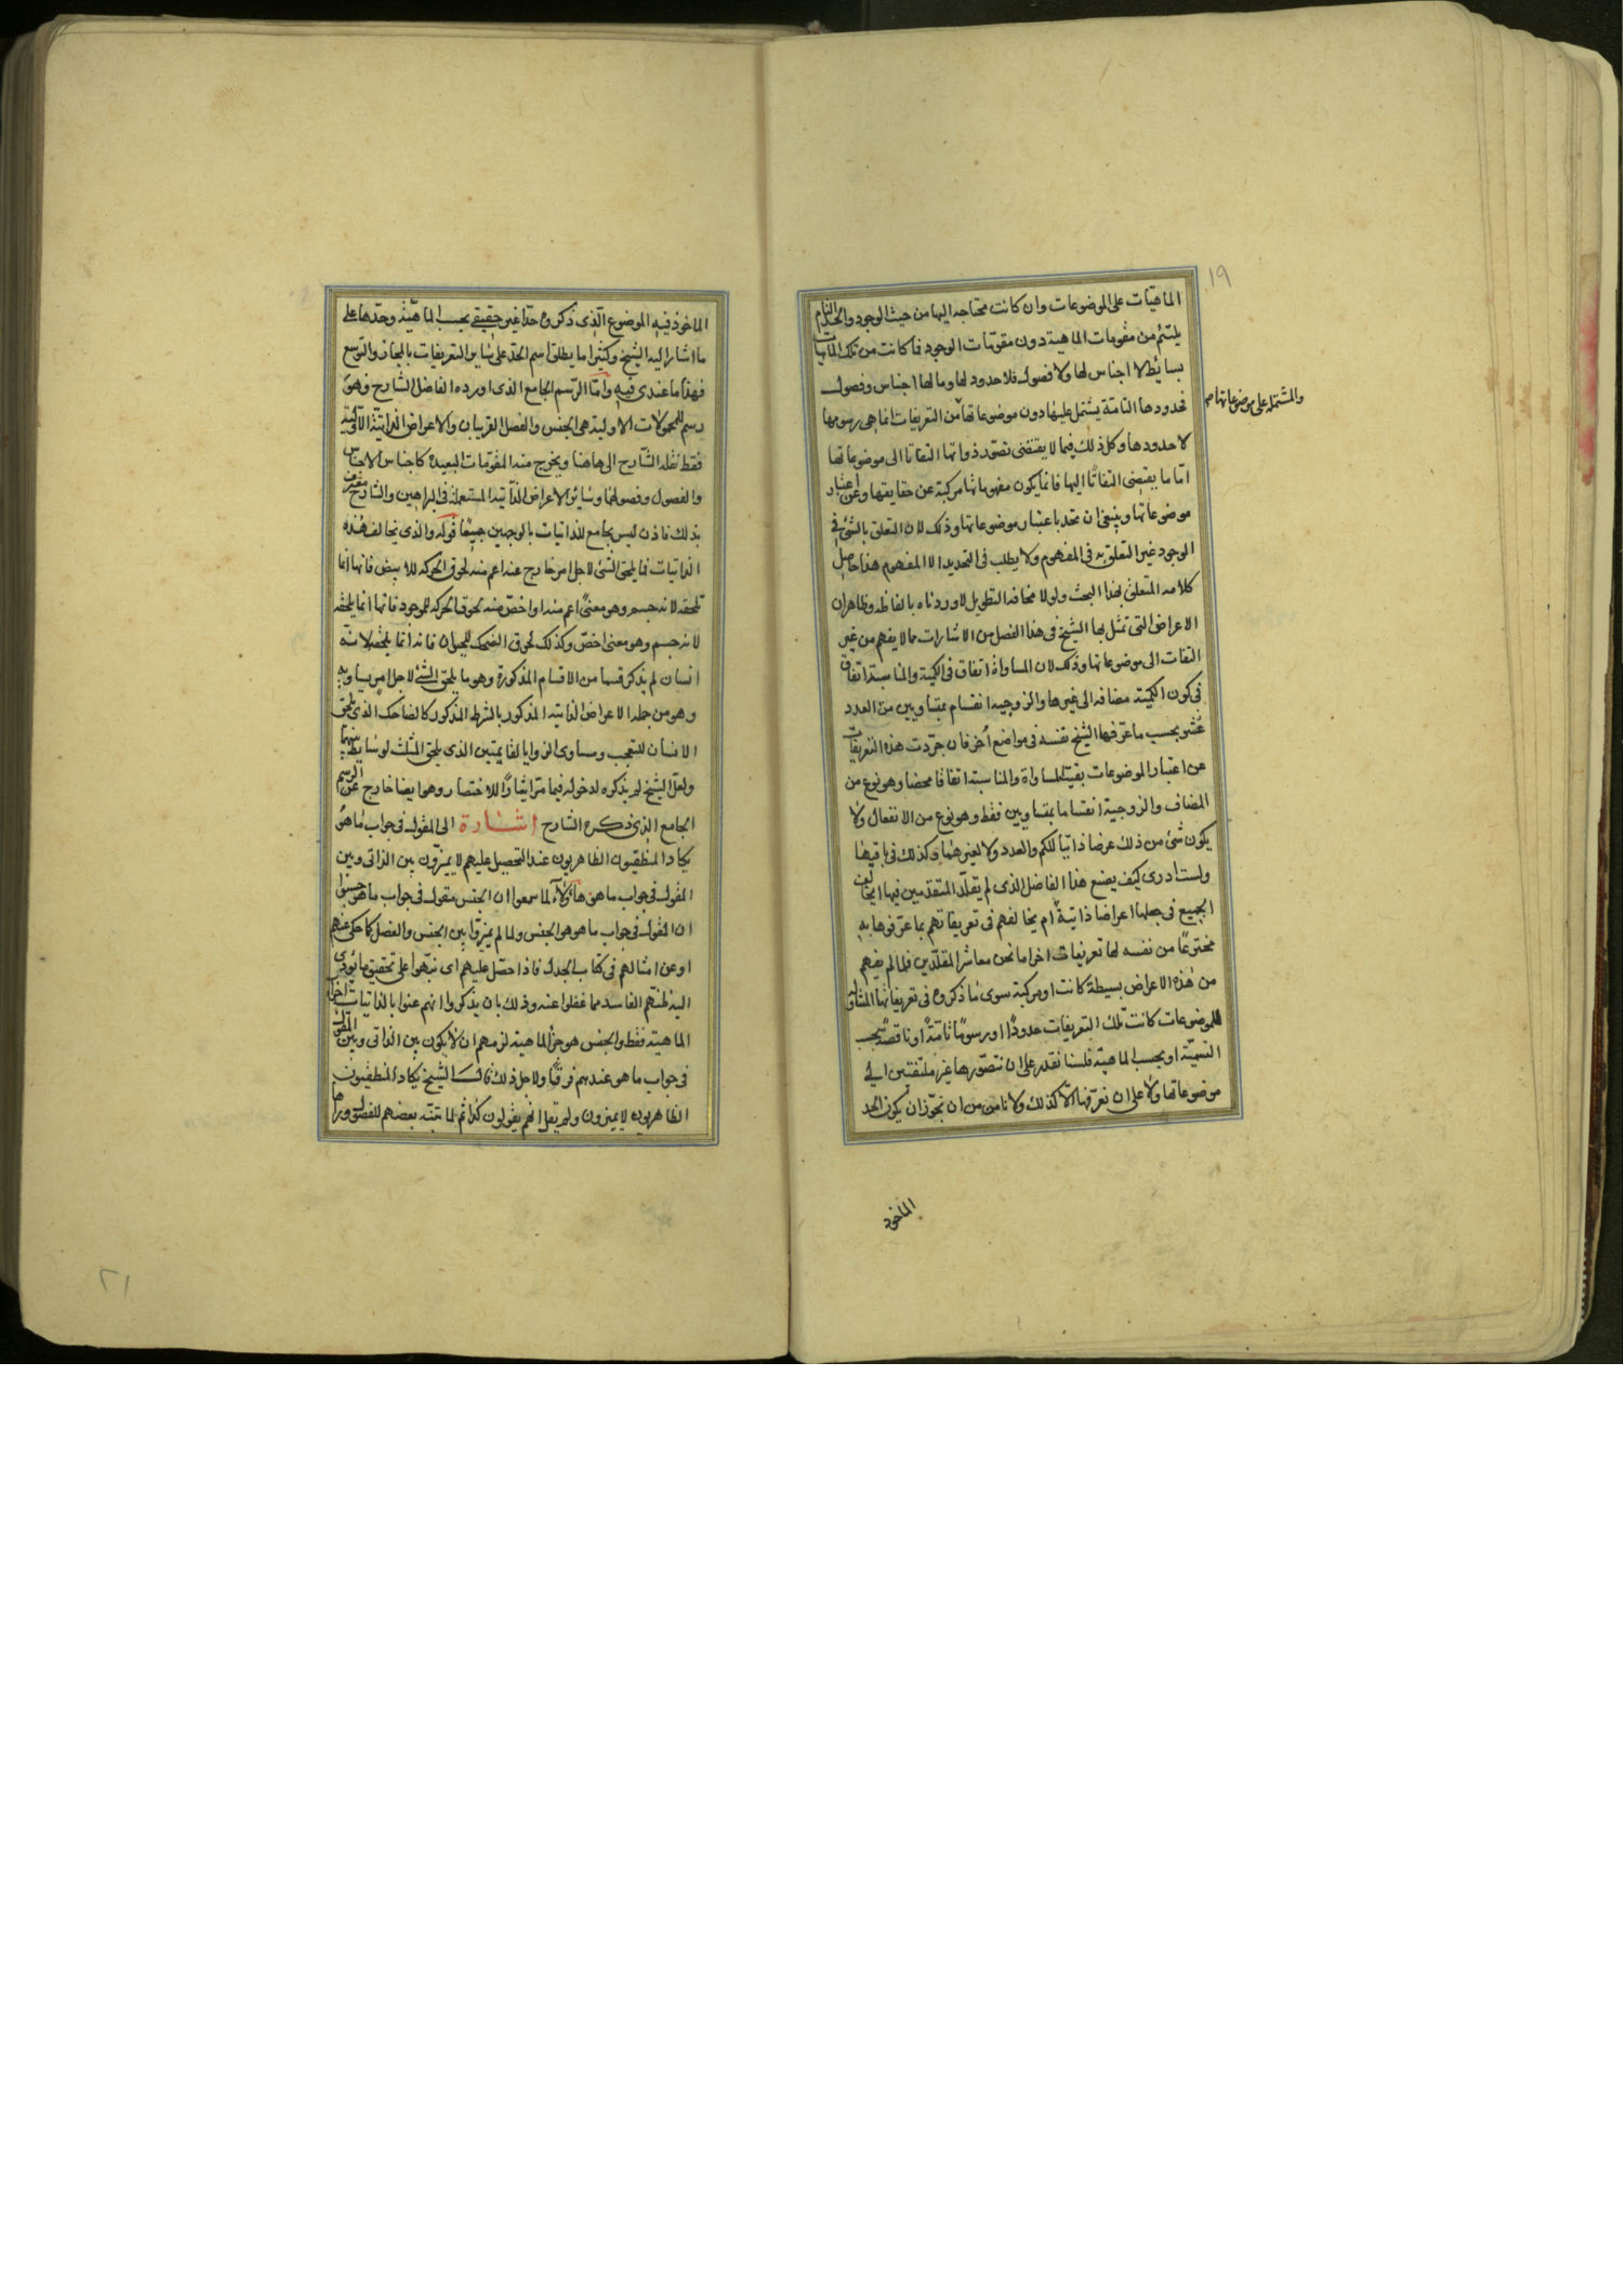 ١٩
الماهيّات على الموضوعات وان كانت محتاجه اليها من حيث الوجود والحدّ التام
يلتئم من مقومات الماهية دون مقومّات الوجود فما كانت من تلك الماهيات
بسايط لا اجناس لها ولا فصول فلا حدود لها وما لها اجناس وفصول
فحدودها التامة يشتمل عليها دون موضوعاتها من التعريفات انما هي رسومها
والمشتمله على موضوعاتها صح
لا حدودها وكل ذلك فيما لا يقتضي تصور ذواتها التفاتا الى موضوعاتها
امّا ما يقتضي التفاتًا اليها فانما يكون مفهوماتها مركبة عن حقايقها وعن اعتبار
موضوعاتها وينبغي ان تحد باعتبار موضوعاتها وذلك لان التعلق بالشئ في
الوجود غير التعلق به في المفهوم ولا يطلب في التحديد الا المفهوم هذا حاصل
كلامه المتعلق بهذا البحث ولولا مخافه التطويل لاوردناه بالفاظه وظاهر ان
الاعراض التي تمثل بها الشيخ في هذا الفصل من الاشارات مما لا يفهم من غير
التفات الى موضوعاتها وذلك لان المساواة اتفاق في الكمية والمناسبة اتفاق
في كون الكمية مضافه الى غيرها والزوجيه انقسام بمتساويين من العدد
بحسب ما عرّفها الشيخ نفسه في مواضع أخر فان جرّدت هذه التعريفات
عن اعتبار الموضوعات بقيت المساواة والمناسبة اتفاقا محضا وهو نوع من
المضاف والزوجية انقساما بمتساويين فقط وهو نوع من الانفعال ولا
يكون شئ من ذلك عرضا ذاتيا للكم والعدد ولا لغيرهما وكذلك في باقيها
ولست ادري كيف يصنع هذا الفاضل الذي لم يقلّد المتقدمين فيها ايخالف
الجميع في جعلها اعراضا ذاتيةً ام يخالفهم في تعريفاتهم بما عرّفوها به
مخترعًا من نفسه لها تعريفات اخر اما نحن معاشر المقلّدين فلما لم يفهم
من هذه الاعراض بسيطة كانت او مركبة سوى ما ذكروه في تعريفاتها المتناولة
للموضوعات كانت تلك التعريفات حدودًا او رسومًا تامّةً او ناقصةً بحسب
التسميّة او بحسب الماهية فلسنا نقدر على ان نتصورها غير ملتفتين الى
موضوعاتها ولا على ان نعرّفها الا كذلك ولا نامن من ان نجوّز ان يكون الحد
الماخود
الماخوذ فيه الموضوع الّذي ذكروه حدا غير حقيقي بحسب الماهية وحدّها على
ما اشار اليه الشيخ وكثيرا ما يطلق اسم الحد على ساير التعريفات بالمجاز والتوسع
فهذا ما عندي فيه وامّا الرّسم الجامع الذي اورده الفاضل الشارح فهو
رسم للمحمولات الاولية هي الجنس والفصل القريبان والاعراض الذاتية الاولية
فقط نقله الشارح الى هاهنا ويخرج منه المقومات البعيدة كاجناس الاجناس
والفصول وفصولها وساير الاعراض الذّاتيه المستعملة في البراهين والشارح معترف
بذلك فاذن ليس بجامع للذاتيات بالوجهين جميعًا قوله والذي يخالف هذه
الذاتيات فما يلحق الشئ لاجل امر خارج عنه اعم منه لحوق الحركه للابيض فانها انما
تلحقه لانه جسم وهو معنًى اعم منه او اخصّ منه لحوق الحركه للموجود فانها انما يلحقه
لانه جسم وهو معنى اخصّ وكذلك لحوق الضحك للحيوان فانه انما يلحقه لانّه
انسان لم يذكر قسما من الاقسام المذكورة وهو ما يلحق الشئ لاجل امر يساويه
وهو من جمله الاعراض الذاتيه المذكور بالشرط المذكور كالضاحك الذي يلحق
الانسان للتعجب ومساوى الزوايا لقايمتين الذي يلحق المثلث لوسايط بينهما
ولعل الشيخ لم يذكره لدخوله فيما مرّ ايثارًا للاختصار وهو ايضا خارج عن الرسم
الجامع الذي ذكره الشارح اشارة الى المقول في جواب ما هو
يكاد المنطقيون الظاهريون عند التحصيل عليهم لا يميزون بين الذاتى وبين
المقول في جواب ما هو هؤلآء لما سمعوا ان الجنس مقول في جواب ما هو حسبوا
ان المقول في جواب ما هو هو الجنس ولما لم يميزوا بين الجنس والفصل كما حكى عنهم
او عن امثالهم في كتاب الجدل فاذا حصّل عليهم اى نبّهوا على تحقيق ما يؤدى
اليه ظنّهم الفاسد مما غفلوا عنه وذلك بان يذكروا انهم عنوا بالذاتيات اجزاء
الماهية فقط والجنس هو جزء الماهية لزمهم ان لا يكون بين الذاتى وبين المقول
في جواب ما هو عندهم فرقًا ولاجل ذلك قال الشيخ يكاد المنطقيون
الظاهريون لا يميزون ولم يقل انهم يقولون كذا ثم لما تنبّه بعضهم للفصول وراها
٢١